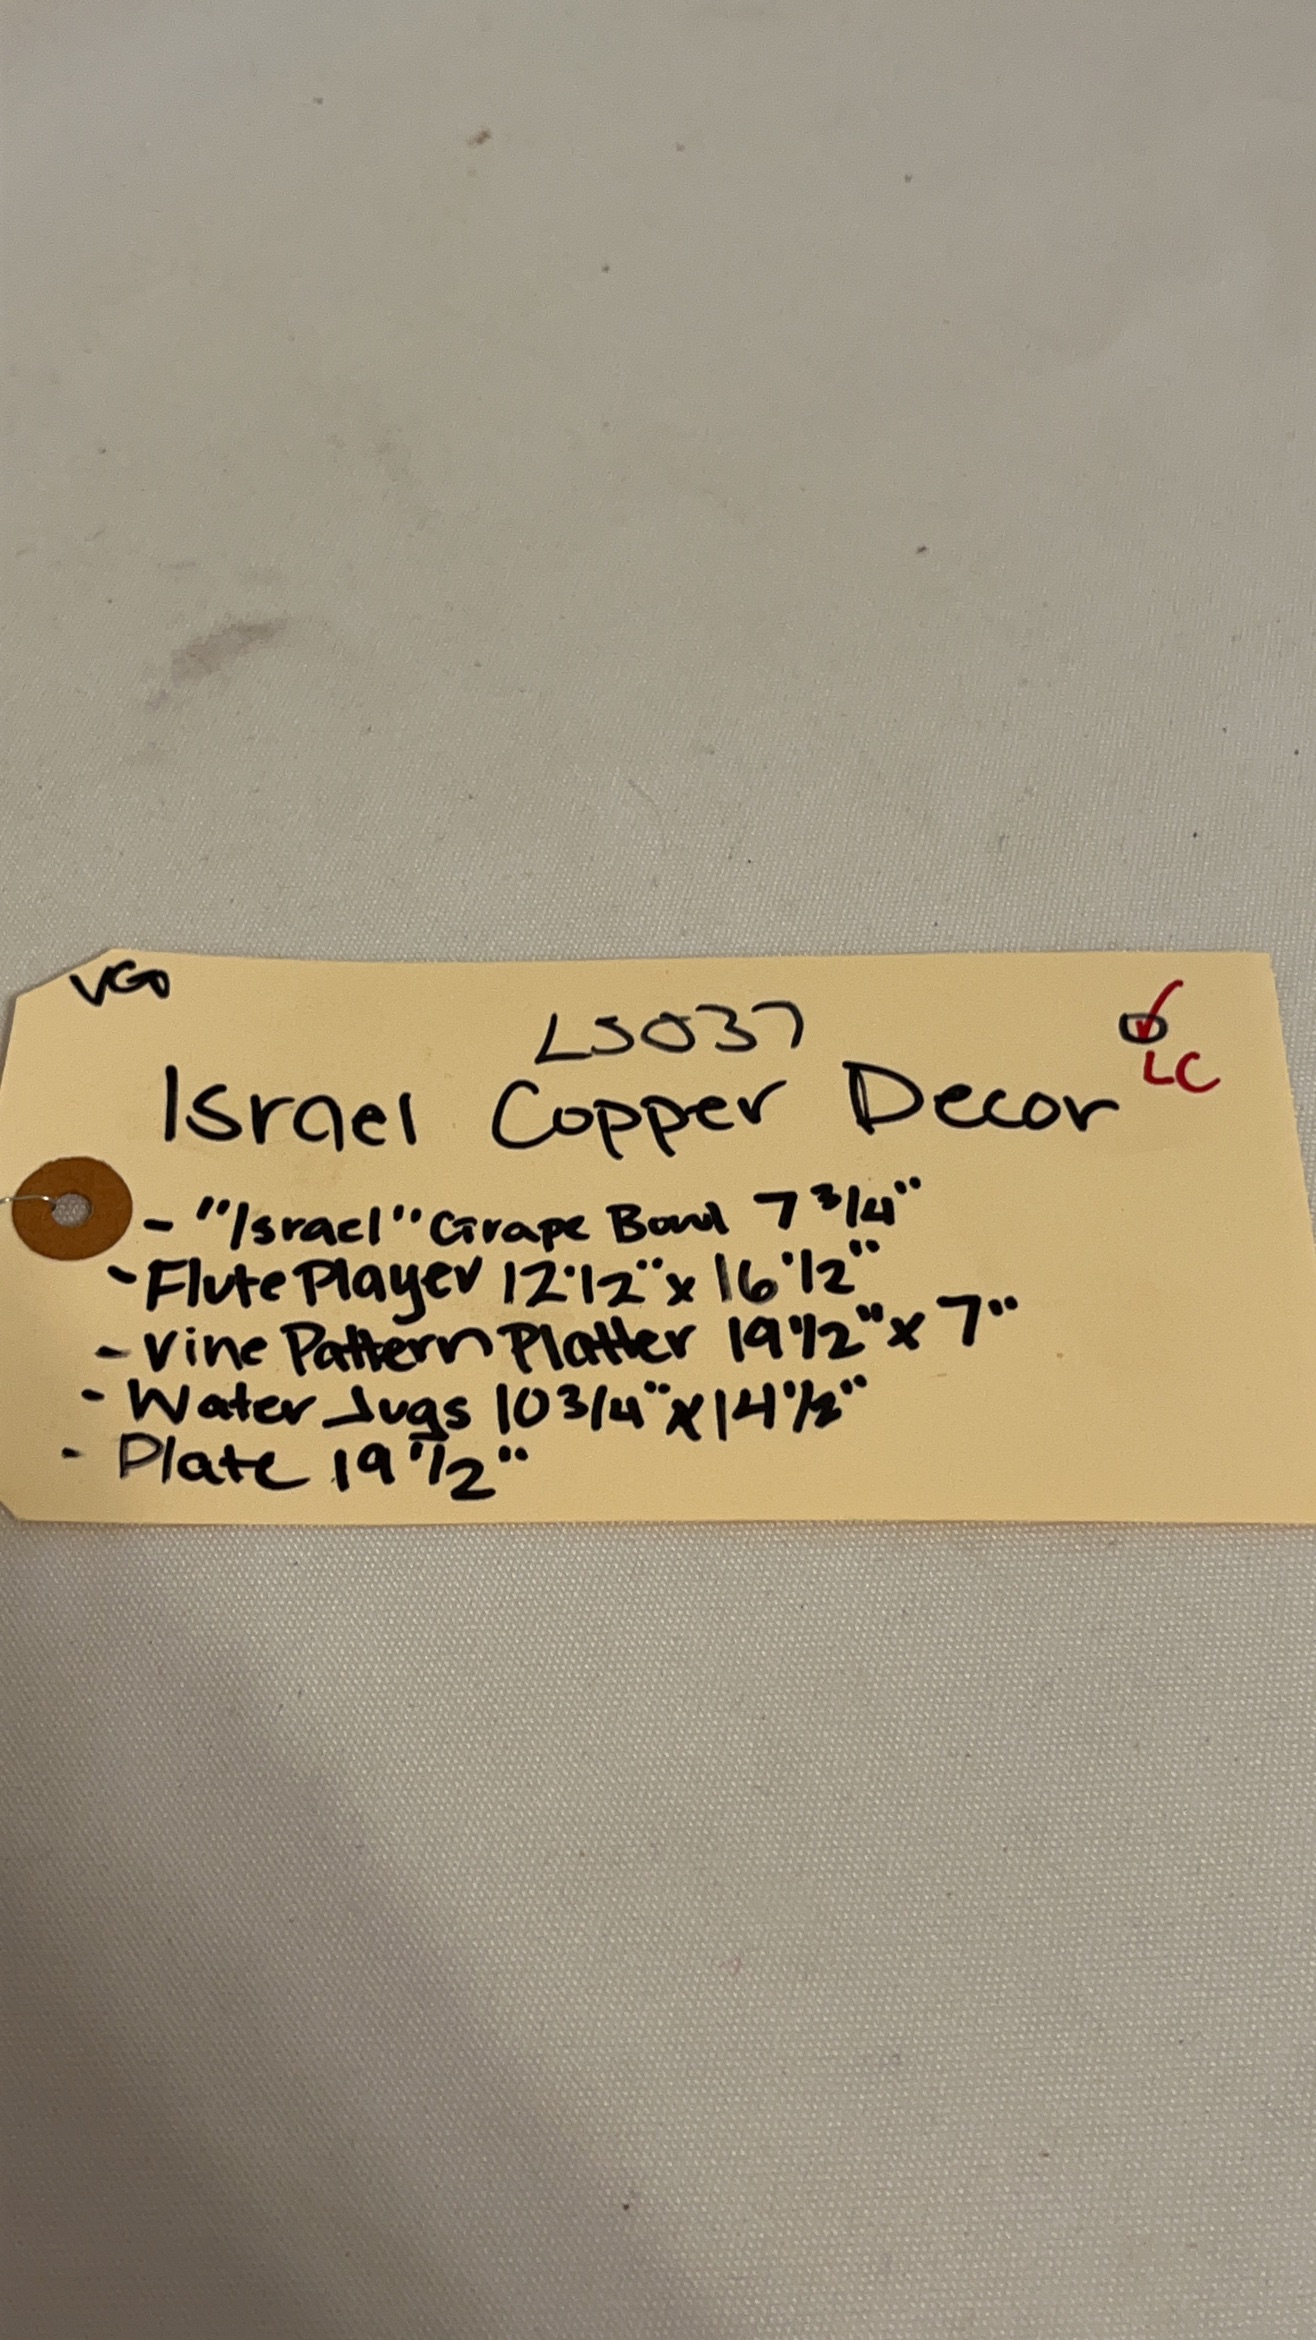 VGO
LS037
LC
Israel Copper Decor
- "Israel" Grape Bowl 7 3/4"
- Flute Player 12 1/2" x 16 1/2"
- Vine Pattern Platter 19 1/2" x 7"
- Water Jugs 10 3/4" x 14 1/2"
- Plate 19 1/2"